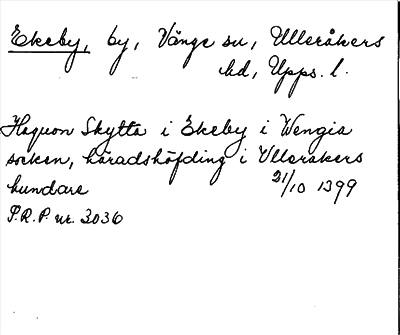 Ekeby, by, Vänge sn, Ulleråkers
hd, Upps. l.
Haquon Skytta i Ekeby i Wengia
soken, häradshöfding i Vlleråkers
hundare 21/10 1399
S.R.P. nr. 3036